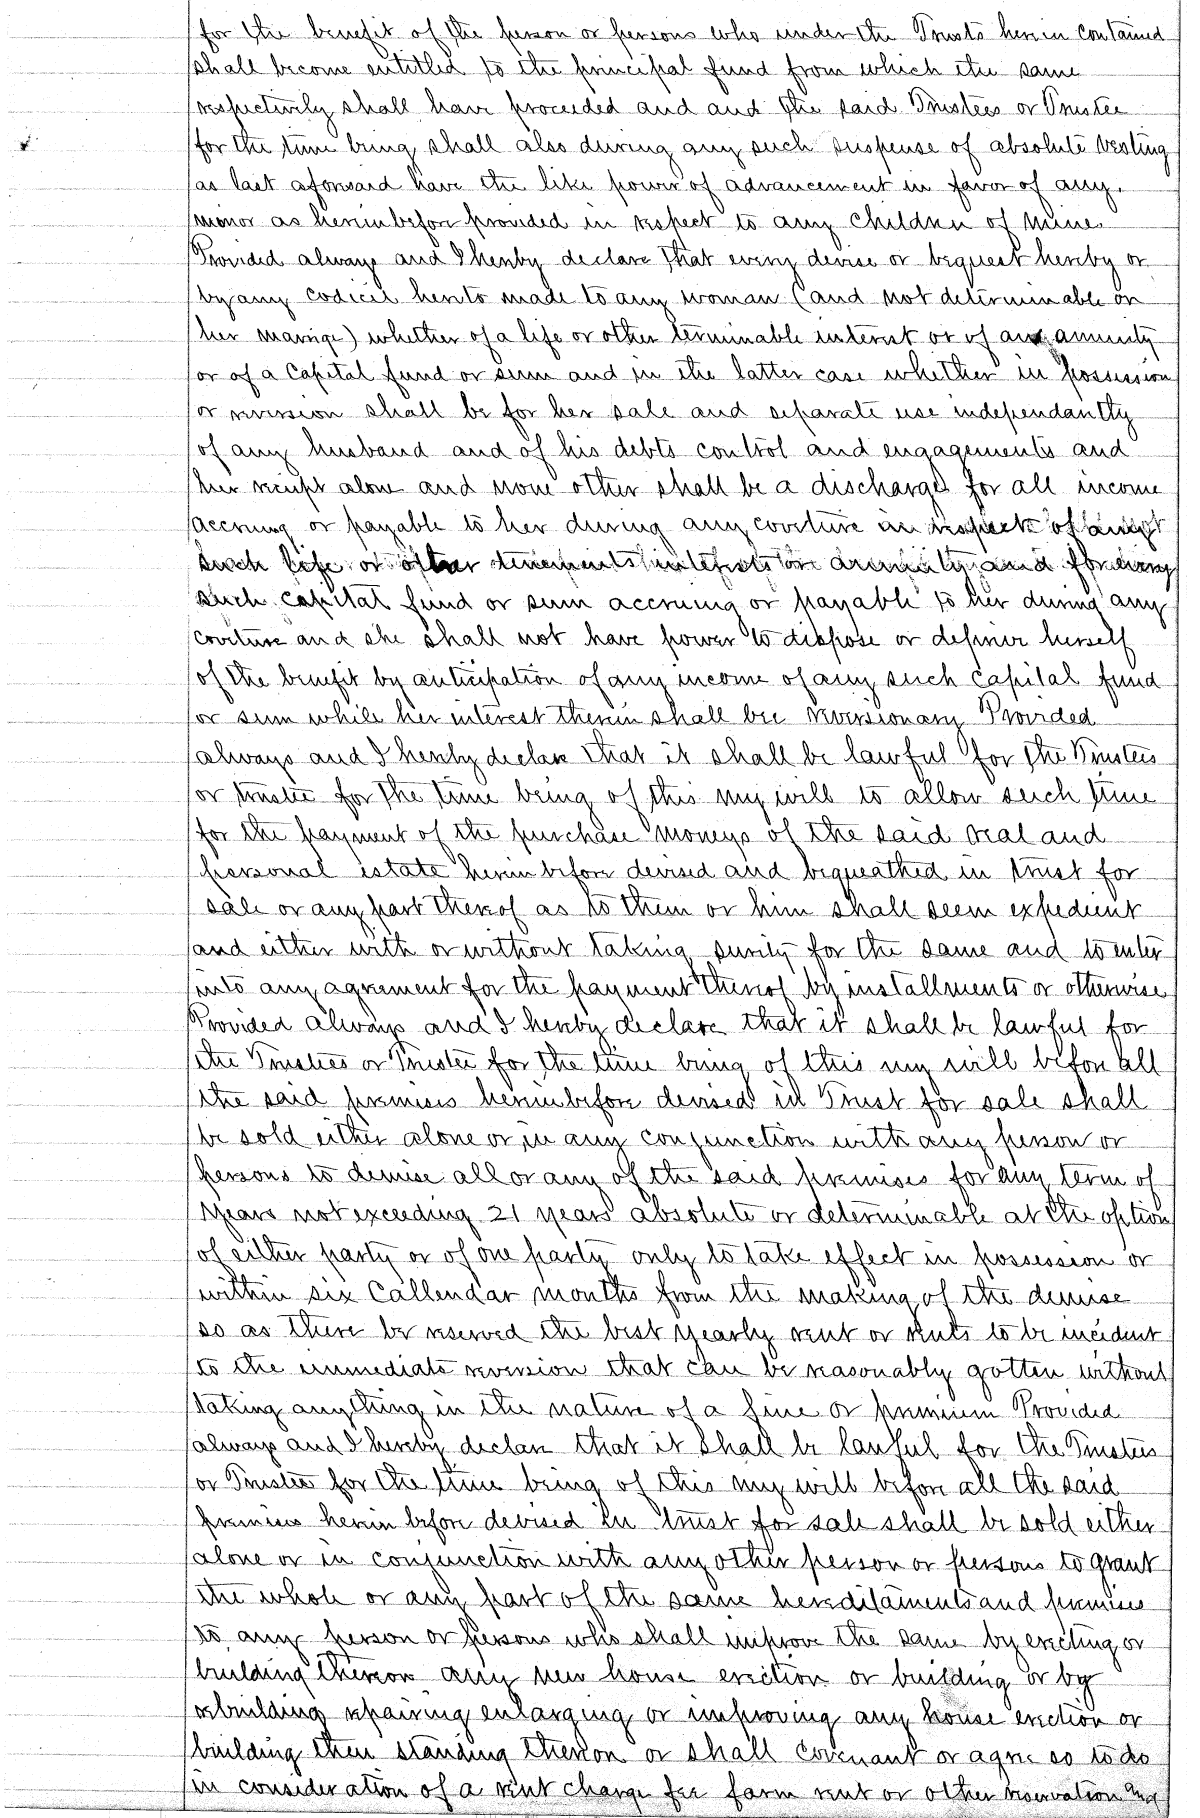 for the benefit of the person or persons who under the Trusts herein contained
shall become entitled to the principal fund from which the same
respectively shall have proceeded and and the said Trustees or Trustee
for the time being shall also during any such suspense of absolute vesting
as last aforesaid have the like power of advancement in favor of any
minor as hereinbefore provided in respect to any children of mine
Provided always and I hereby declare that every devise or bequest hereby or
by any codicil hereto made to any woman (and not determinable on
her marrige) whether of a life or other terminable interest or of an annuity
or of a Capital fund or sum and in the latter case whether in possession
or reversion shall be for her sale and separate use independantly
of any husband and of his debts control and engagements and
her receipt alone and none other shall be a discharge for all income
accruing or payable to her during any coverture in respect of any
such life or other tenements interests or annuity and for any
such capital fund or sum accruing or payable to her during any
coverture and she shall not have power to dispose or deprive herself
of the benefit by anticipation of any income of any such capital fund
or sum while her interest therein shall bee reversionary Provided
always and I hereby declare that it shall be lawful for the Trustees
or trustee for the time being of this my will to allow such time
for the payment of the purchase moneys of the said real and
personal estate hereinbefore devised and bequeathed in trust for
sale or any part thereof as to them or him shall seem expedient
and either with or without taking surity for the same and to enter
into any agreement for the payment thereof by installments or otherwise
Provided always and I hereby declare that it shall be lawful for
the Trustees or Trustee for the time being of this my will before all
the said premises hereinbefore devised in Trust for sale shall
be sold either alone or in any conjunction with any person or
persons to demise all or any of the said premises for any term of
years not exceeding 21 years absolute or determinable at the option
of either party or of one party only to take effect in possession or
within six Callendar months from the making of the demise
so as there be reserved the best yearly rent or rents to be incident
to the immediate reversion that can be reasonably gotten without
taking anything in the nature of a fine or premium Provided
always and I hereby declare that it shall be lawful for the Trustees
or Trustee for the time being of this my will before all the said
premises herein before devised in trust for sale shall be sold either
alone or in conjunction with any other person or persons to grant
the whole or any part of the same hereditaments and premises
to any person or persons who shall improve the same by erecting or
building thereon any new house erection or building or by
rebuilding repairing enlarging or improving any house erection or
building then standing thereon or shall covenant or agree so to do
in consideration of a rent charge fee farm rent or other reservation